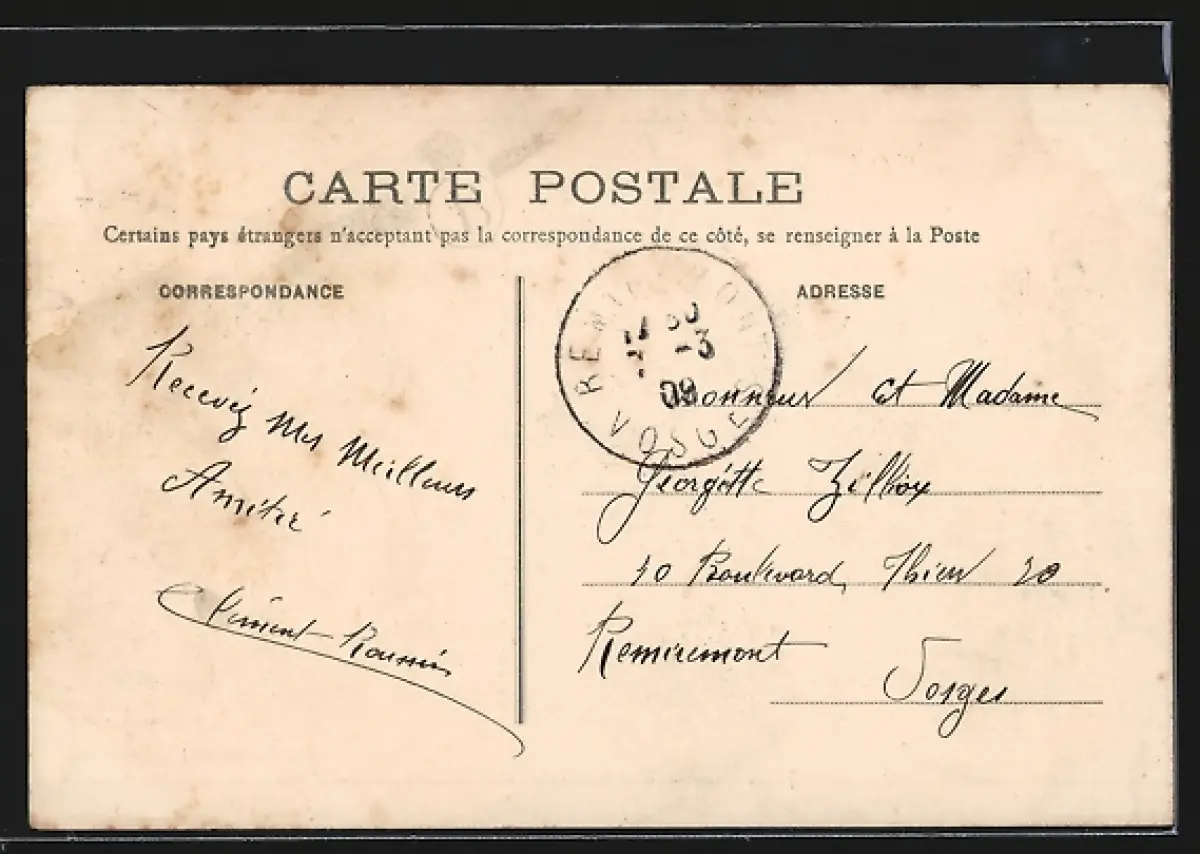 CARTE POSTALE
Certains pays étrangers n'acceptant pas la correspondance de ce côté, se renseigner à la Poste
CORRESPONDANCE
ADRESSE
Recevez Mes Meilleurs
Amitié
Clément
REMIREMONT
30
-3
09
VOSGES
Monsieur et Madame
Georgette Zilliox
10 Boulevard Thiers 10
Remiremont
Vosges